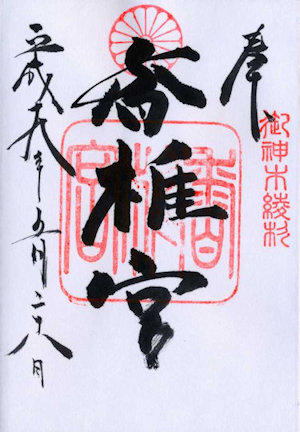 奉
御神木綾杉
香椎宮
香椎宮
平成十九年五月二十八日